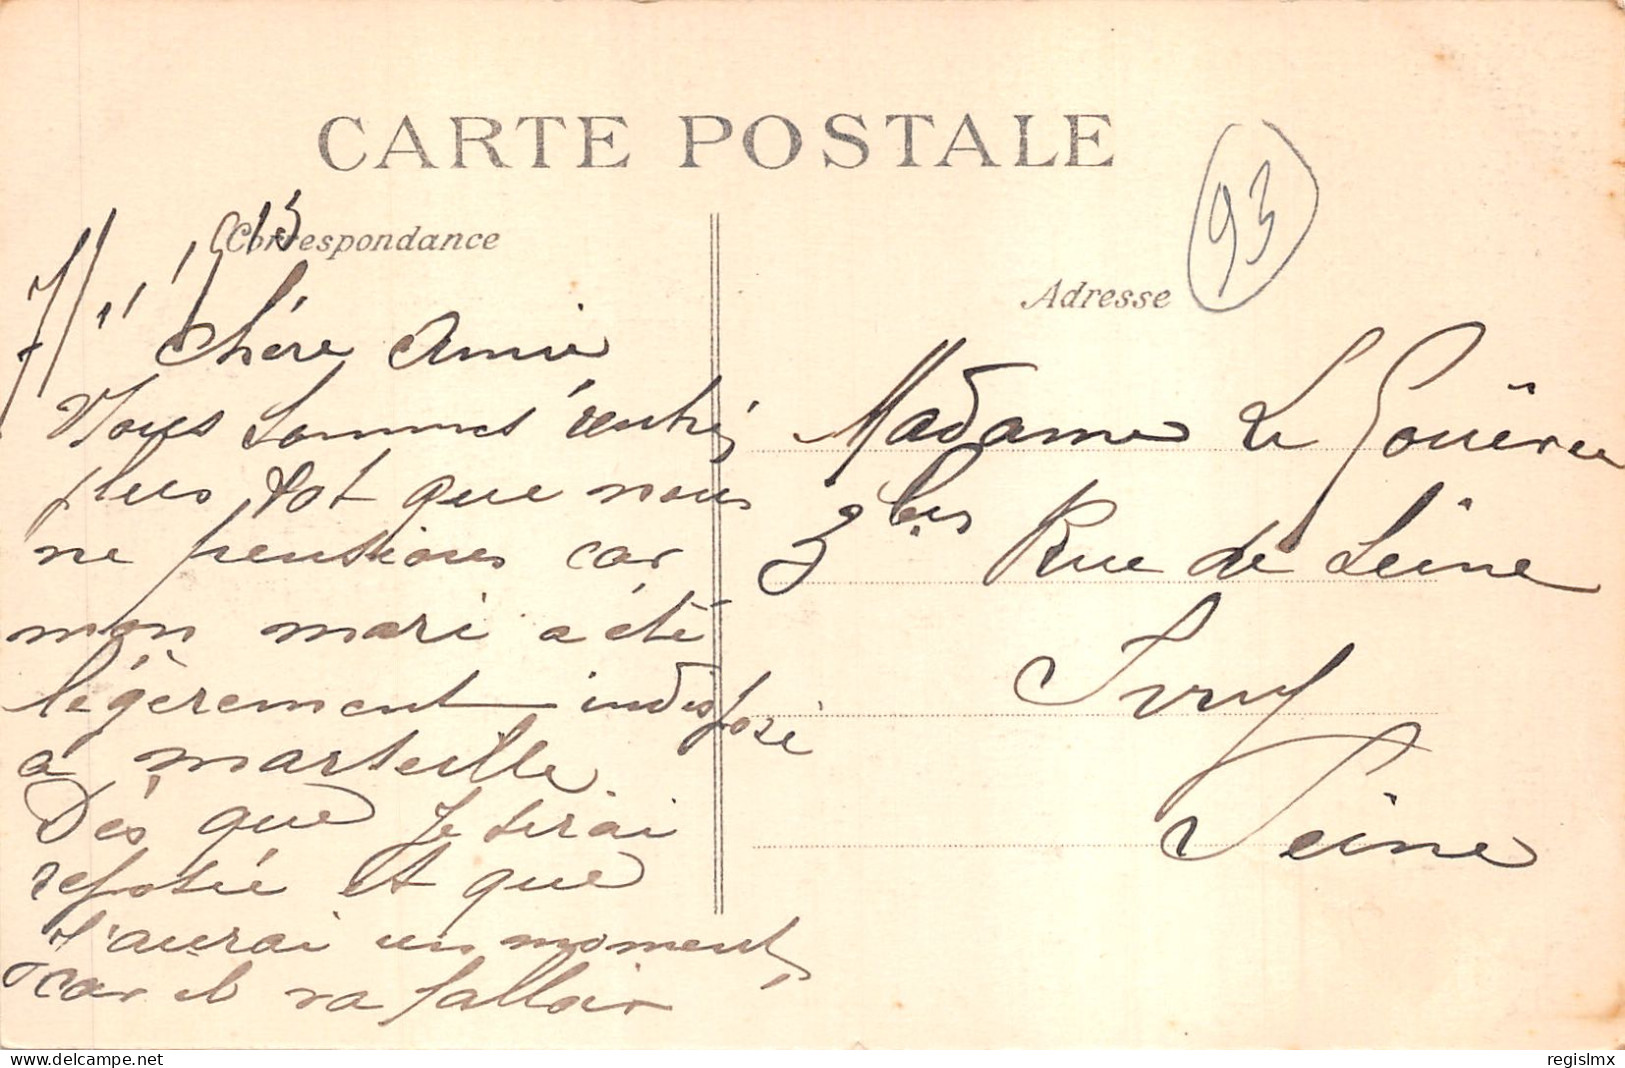 CARTE POSTALE
Correspondance
93
Adresse
Chère Amie
Nous sommes rentrés
plus tot que nous
ne pensions car
mon mari a été
légèrement indisposé
a marseille
Dés que je serai
reposée et que
j'aurai un moment,
car il va falloir
Madame Le Gouëree
3 bis Rue de Seine
Ivry
Seine
regislmx